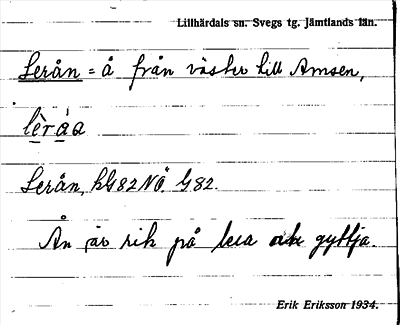 Lillhärdals sn. Svegs tg. Jämtlands län.
Lerån = å från väster till Amsen,
lèráa
Lerån, hG82NÖ. G82.
Ån är rik på lera och gyttja.
Erik Eriksson 1934.